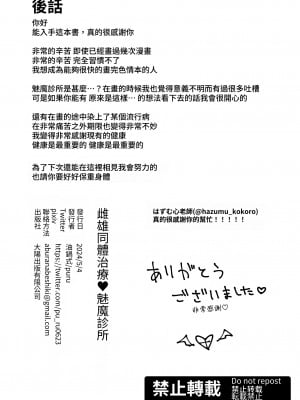 後話
你好
能入手這本書，真的很感謝你
非常的辛苦 即使已經畫過幾次漫畫
非常的辛苦 完全習慣不了
我想成為能夠很快的畫完色情本的人
魅魔診所是甚麼…？在畫的時候我也覺得意義不明而有過很多吐槽
可是如果你能有 原來是這樣… 的想法看下去的話我會很開心的
還有在畫的途中染上了某個流行病
在非常痛苦之外期限也變得非常不妙
我變得非常感謝現有的健康
健康是最重要的 健康是最重要的
為了下次還能在這裡相見我會努力的
也請你要好好保重身體
はずむ心老師(@hazumu_kokoro)
真的很感謝你的幫忙！！！！！
ありがとう
ございました♡
非常感謝♡
雌雄同體治療♥魅魔診所
發行日 2024/5/4
發行者 油鍋式/puru
Twitter https://twitter.com/pu_ru0623
pixiv
聯絡方法 aburanabeshiki@gmail.com
出版社 大陽出版有限公司
禁止轉載
Do not repost
転載禁止